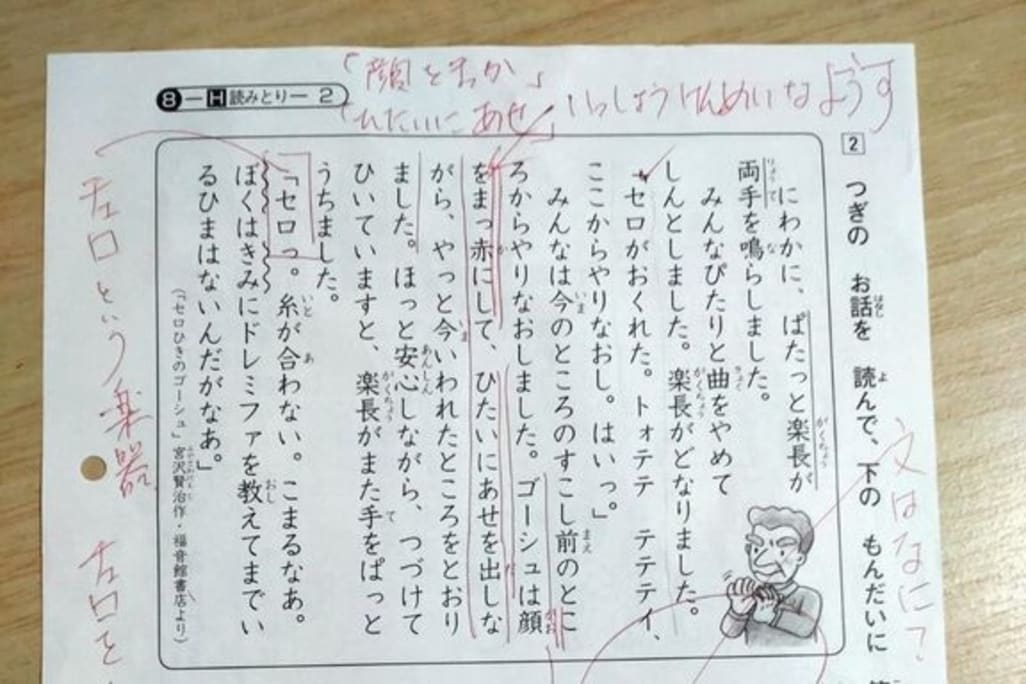 8-H 読みとり-2
「顔をまっか」
「ひたいにあせ」
いっしょうけんめいなようす
2 つぎの お話を 読んで、下の もんだいに
にわかに、ぱたっと楽長が
両手を鳴らしました。
みんなぴたりと曲をやめて
しんとしました。楽長がどなりました。
「セロがおくれた。トォテテ テテテイ、
ここからやりなおし。はいっ。」
みんなは今のところのすこし前のとこ
ろからやりなおしました。ゴーシュは顔
をまっ赤にして、ひたいにあせを出しな
がら、やっと今いわれたところをとおり
ました。ほっと安心しながら、つづけて
ひいていますと、楽長がまた手をぱっと
うちました。
「セロっ。糸が合わない。こまるなあ。
ぼくはきみにドレミファを教えてまでい
るひまはないんだがなあ。」
(「セロひきのゴーシュ」宮沢賢治作・福音館書店より)
文はなに?
チェロという楽器
チェロを